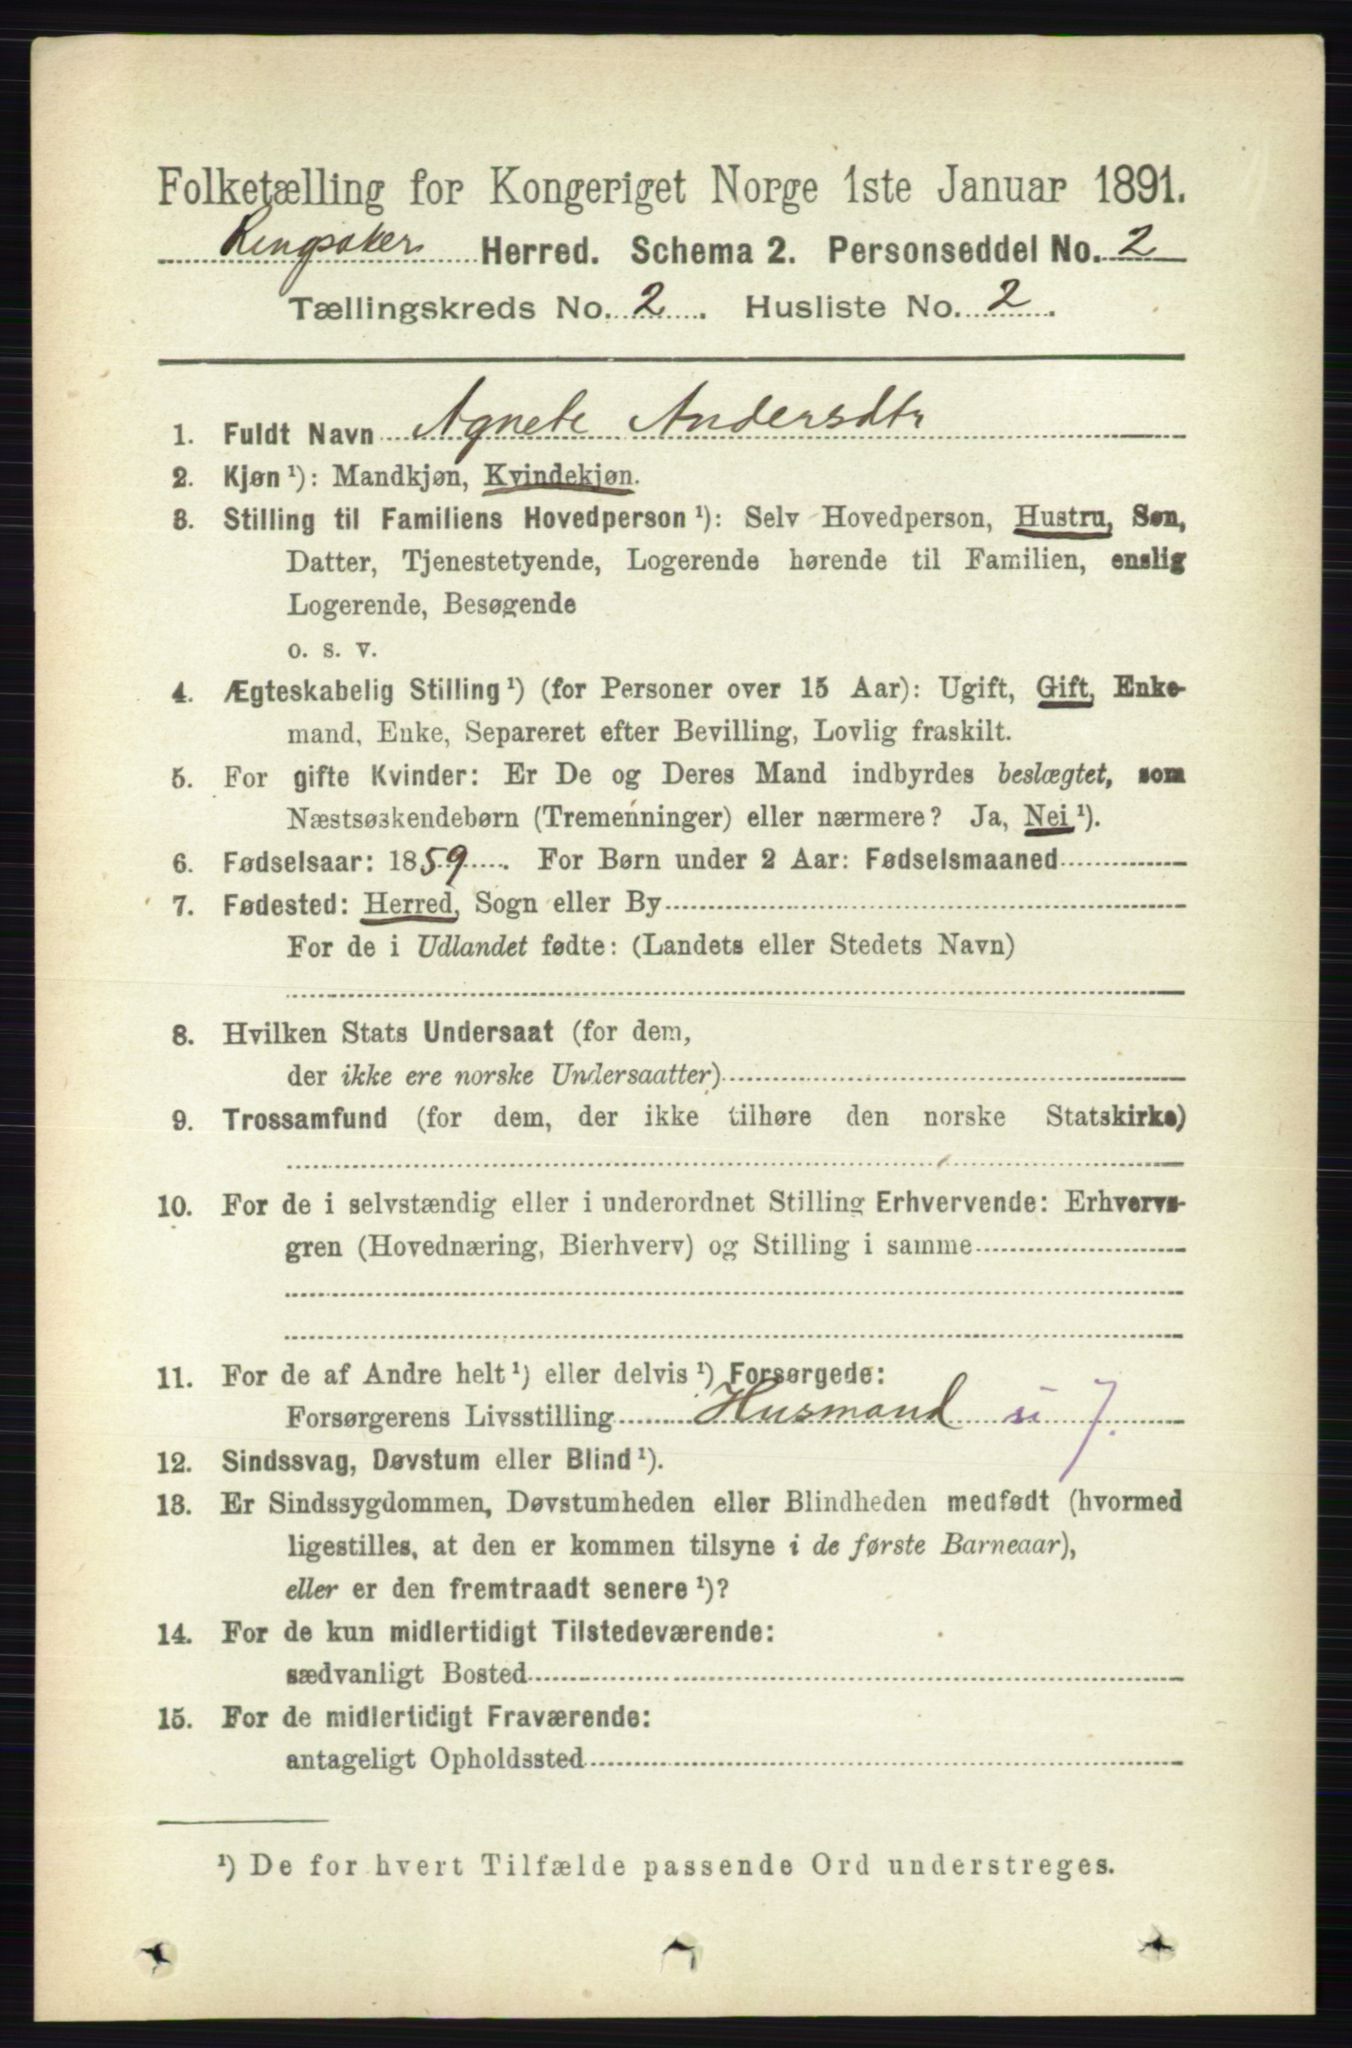 Folketælling for Kongeriget Norge 1ste Januar 1891.
Ringsaker Herred. Schema 2. Personseddel No. 2
Tællingskreds No. 2. Husliste No. 2.
1. Fuldt Navn Agnete Andersdtr
2. Kjøn ¹): Mandkjøn, Kvindekjøn.
3. Stilling til Familiens Hovedperson ¹): Selv Hovedperson, Hustru, Søn,
Datter, Tjenestetyende, Logerende hørende til Familien, enslig
Logerende, Besøgende
o. s. v.
4. Ægteskabelig Stilling ¹) (for Personer over 15 Aar): Ugift, Gift, Enke-
mand, Enke, Separeret efter Bevilling, Lovlig fraskilt.
5. For gifte Kvinder: Er De og Deres Mand indbyrdes beslægtet, som
Næstsøskendebørn (Tremenninger) eller nærmere? Ja, Nei ¹).
6. Fødselsaar: 1859. For Børn under 2 Aar: Fødselsmaaned
7. Fødested: Herred, Sogn eller By
For de i Udlandet fødte: (Landets eller Stedets Navn)
8. Hvilken Stats Undersaat (for dem,
der ikke ere norske Undersaatter)
9. Trossamfund (for dem, der ikke tilhøre den norske Statskirke)
10. For de i selvstændig eller i underordnet Stilling Erhvervende: Erhvervs-
gren (Hovednæring, Bierhverv) og Stilling i samme
11. For de af Andre helt ¹) eller delvis ¹) Forsørgede:
Forsørgerens Livsstilling Husmand
12. Sindssvag, Døvstum eller Blind ¹).
13. Er Sindssygdommen, Døvstumheden eller Blindheden medfødt (hvormed
ligestilles, at den er kommen tilsyne i de første Barneaar),
eller er den fremtraadt senere ¹)?
14. For de kun midlertidigt Tilstedeværende:
sædvanligt Bosted
15. For de midlertidigt Fraværende:
antageligt Opholdssted
¹) De for hvert Tilfælde passende Ord understreges.